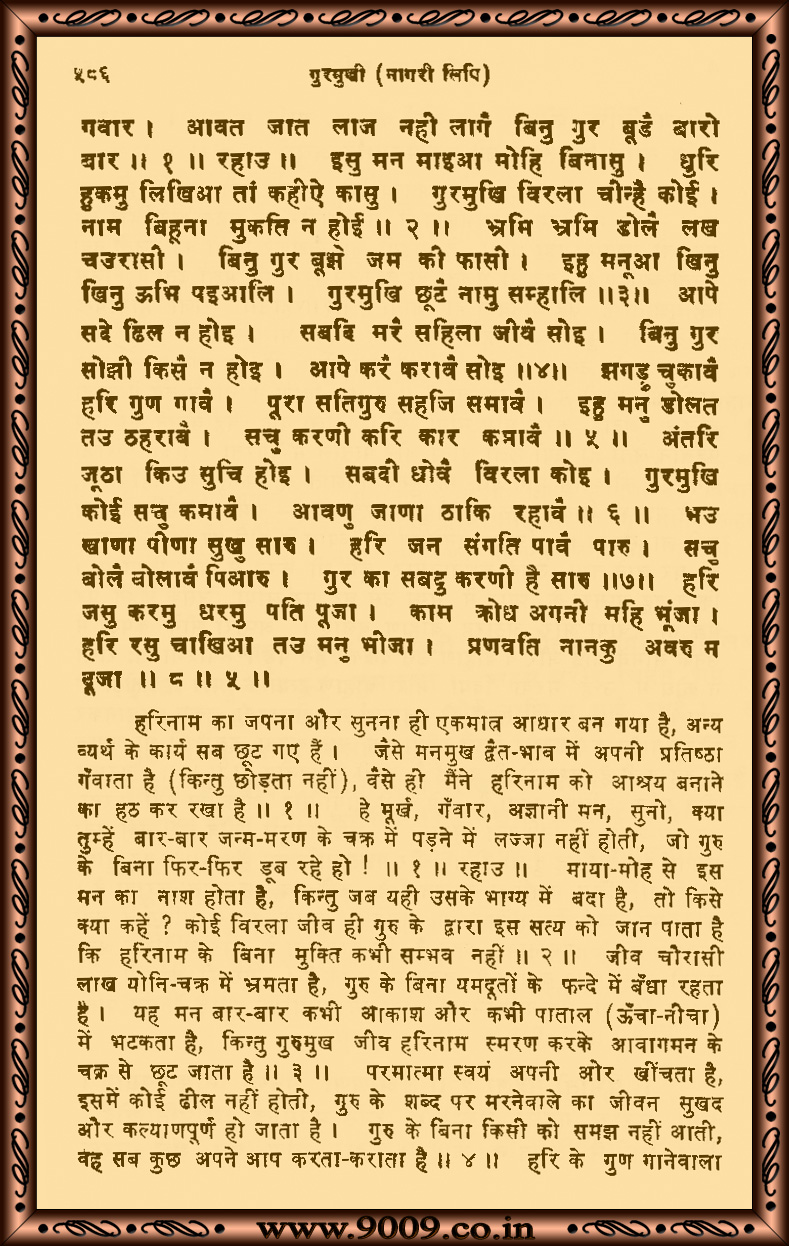 ५८६ गुरमुखी (नागरी लिपि)
गवार । आवत जात लाज नही लागै बिनु गुर बूडै बारो
बार ॥ १ ॥ रहाउ ॥ इसु मन माइआ मोहि बिनासु । धुरि
हुकमु लिखिआ तां कहीऐ कासु । गुरमुखि विरला चीन्है कोई ।
नाम बिहूना मुकति न होई ॥ २ ॥ भ्रमि भ्रमि डोलै लख
चउरासी । बिनु गुर बूझे जम की फासी । इहु मनूआ खिनु
खिनु ऊभि पइआलि । गुरमुखि छूटै नामु सम्हालि ॥३॥ आपे
सदे ढिल न होइ । सबदि मरै सहिला जीवै सोइ । बिनु गुर
सोझी किसै न होइ । आपे करै करावै सोइ ॥४॥ झगड़ु चुकावै
हरि गुण गावै । पूरा सतिगुरु सहजि समावै । इहु मनु डोलत
तउ ठहरावै । सचु करणी करि कार कमावै ॥ ५ ॥ अंतरि
जूठा किउ सुचि होइ । सबदी धोवै विरला कोइ । गुरमुखि
कोई सचु कमावै । आवणु जाणा ठाकि रहावै ॥ ६ ॥ भउ
खाणा पीणा सुखु सारु । हरि जन संगति पावै पारु । सचु
बोलै बोलावै पिआरु । गुर का सबदु करणी है सारु ॥७॥ हरि
जसु करमु धरमु पति पूजा । काम क्रोध अगनी महि भूंजा ।
हरि रसु चाखिआ तउ मनु भीजा । प्रणवति नानकु अवरु म
दूजा ॥ ८ ॥ ५ ॥
हरिनाम का जपना और सुनना ही एकमात्र आधार बन गया है, अन्य
व्यर्थ के कार्य सब छूट गए हैं । जैसे मनमुख द्वैत-भाव में अपनी प्रतिष्ठा
गँवाता है (किन्तु छोड़ता नहीं), वैसे ही मैंने हरिनाम को आश्रय बनाने
का हठ कर रखा है ॥ १ ॥ हे मूर्ख, गँवार, अज्ञानी मन, सुनो, क्या
तुम्हें बार-बार जन्म-मरण के चक्र में पड़ने में लज्जा नहीं होती, जो गुरु
के बिना फिर-फिर डूब रहे हो ! ॥ १ ॥ रहाउ ॥ माया-मोह से इस
मन का नाश होता है, किन्तु जब यही उसके भाग्य में बदा है, तो किसे
क्या कहें ? कोई विरला जीव ही गुरु के द्वारा इस सत्य को जान पाता है
कि हरिनाम के बिना मुक्ति कभी सम्भव नहीं ॥ २ ॥ जीव चौरासी
लाख योनि-चक्र में भ्रमता है, गुरु के बिना यमदूतों के फन्दे में बँधा रहता
है । यह मन बार-बार कभी आकाश और कभी पाताल (ऊँचा-नीचा)
में भटकता है, किन्तु गुरुमुख जीव हरिनाम स्मरण करके आवागमन के
चक्र से छूट जाता है ॥ ३ ॥ परमात्मा स्वयं अपनी ओर खींचता है,
इसमें कोई ढील नहीं होती, गुरु के शब्द पर मरनेवाले का जीवन सुखद
और कल्याणपूर्ण हो जाता है । गुरु के बिना किसी को समझ नहीं आती,
वह सब कुछ अपने आप करता-कराता है ॥ ४ ॥ हरि के गुण गानेवाला
www.9009.co.in